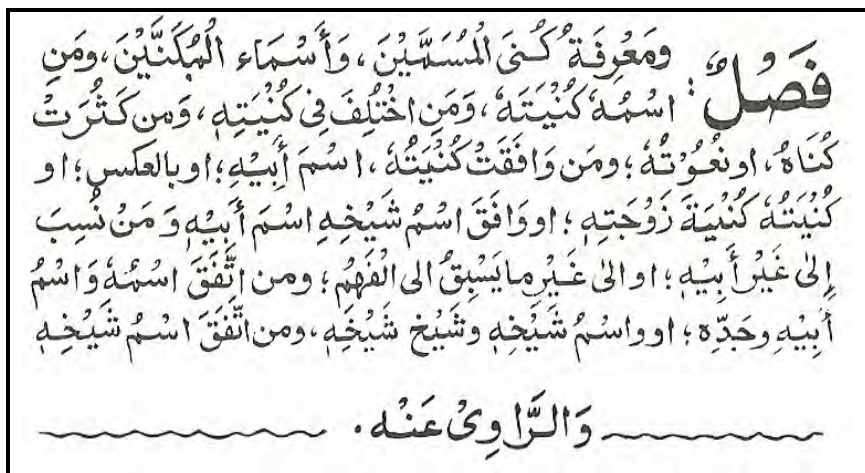 فَصْلٌ: وَمَعْرِفَةُ كُنَى الْمُسَمَّيْنَ، وَأَسْمَاءِ الْمُكَنَّيْنَ، وَمَنِ
اسْمُهٗ كُنْيَتَهٗ، وَمَنِ اخْتُلِفَ فِى كُنْيَتِهٖ، وَمَن كَثُرَتْ
كُنَاهُ، او نُعُوْتُهٗ؛ ومَن وَافَقَتْ كُنْيَتُهٗ، اسْمَ أَبِيْهِ؛ او بالعكسِ؛ او
كُنْيَتُهٗ كُنْيَةَ زَوْجَتِهٖ؛ او وَافَقَ اسْمُ شَيْخِهٖ اسْمَ أَبِيْهِ وَ مَنْ نُسِبَ
إِلىٰ غَيْرِ أَبِيْهٖ؛ او الىٰ غَيْرِ ما يَسْبِقُ الى الْفَهْمِ؛ ومن اتَّفَقَ اسْمُهٗ وَاسْمُ
أَبِيْهِ وجَدِّهٖ؛ او واسْمُ شَيْخِهٖ وشَيْخ شَيْخِهٖ، ومن اتَّفَقَ اسْمُ شَيْخِهٖ
وَالرَّاوِىْ عَنْه۔